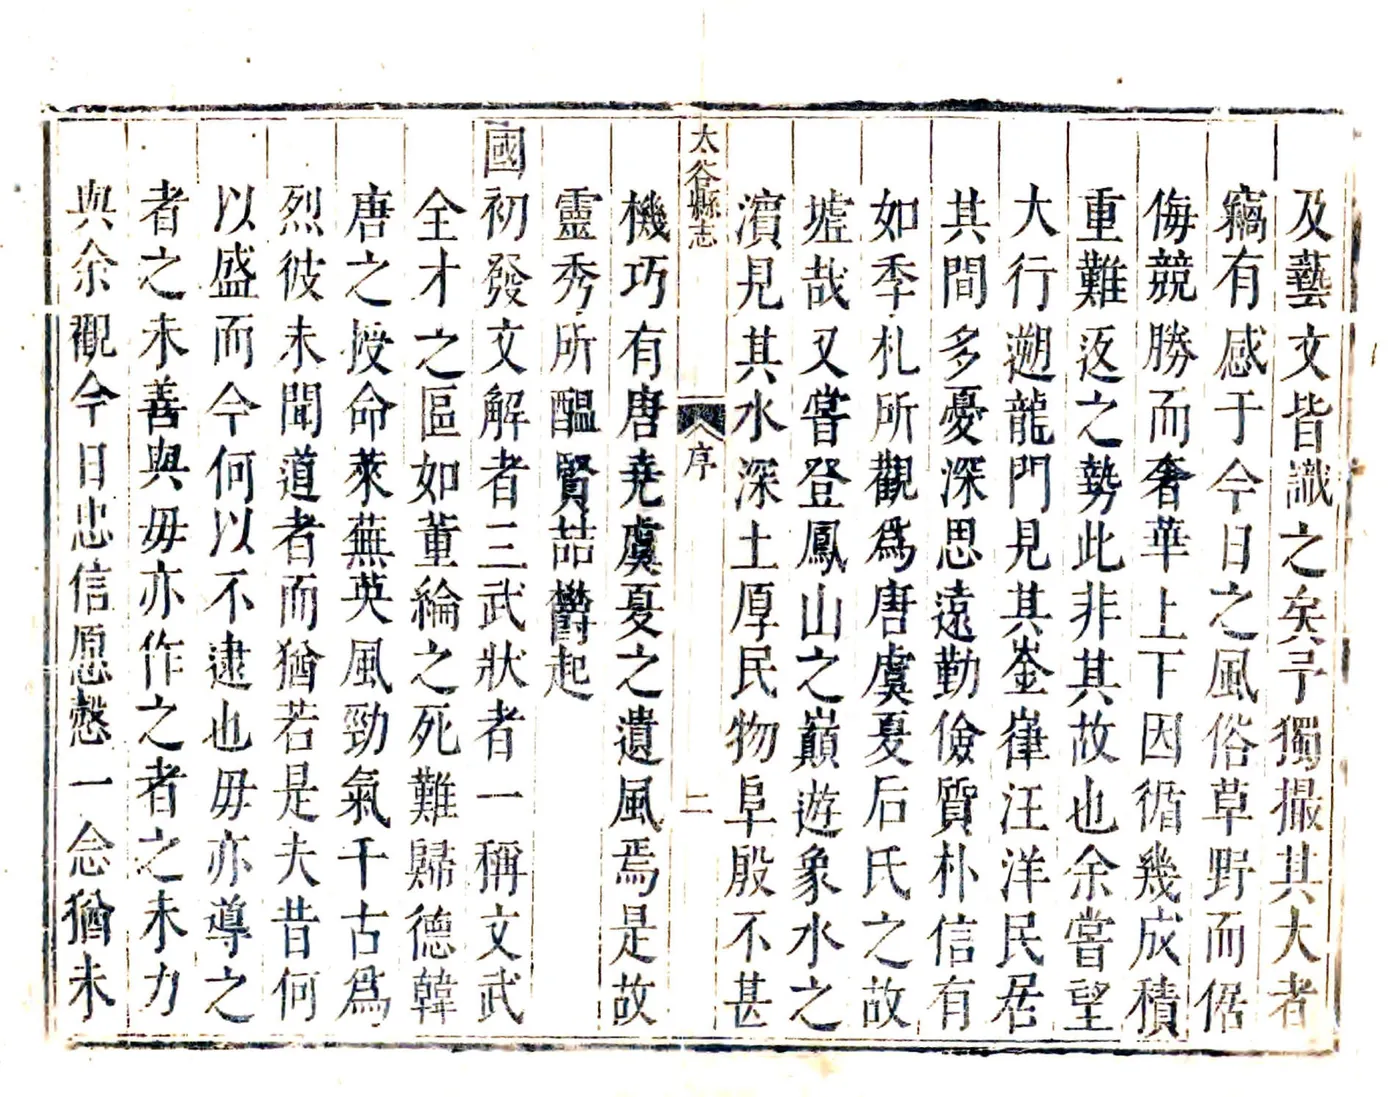 及藝文皆識之矣予獨撮其大者
竊有感于今日之風俗草野而倨
侮競勝而奢華上下因循幾成積
重難返之勢此非其故也余嘗望
大行遡龍門見其崟嵂汪洋民居
其間多憂深思遠勤儉質朴信有
如季札所觀爲唐虞夏后氏之故
墟哉又嘗登鳳山之巔遊象水之
濵見其水深土厚民物阜殷不甚
太谷縣志
序
二
機巧有唐堯虞夏之遺風焉是故
靈秀所醞賢喆欝起
國初發文解者三武狀者一稱文武
全才之區如董綸之死難歸德韓
唐之授命萊蕪英風勁氣千古爲
烈彼未聞道者而猶若是夫昔何
以盛而今何以不逮也毋亦導之
者之未善與毋亦作之者之未力
與余觀今日忠信愿慤一念猶未